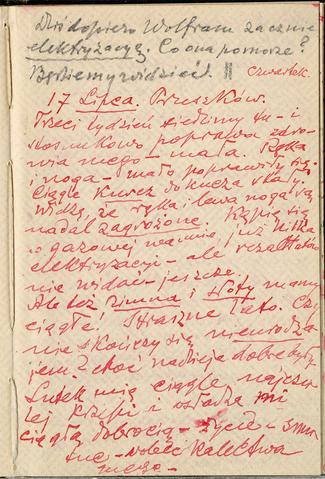 Dziś dopiero Wolfram zacznie
elektryzację. Co ona pomoże?
Będziemy widzieli.
Czwartek.
17 Lipca. Pruszków.
Trzeci tydzień siedzimy tu - i
stosunkowo poprawa zdro-
wia mego - mała. Ręka
i noga - mało poprawiły się
Ciągle kurcz dokucza składy.
Widzę, że ręka i lewa noga są
nadal zagrożone. Kąpię się
w gazowej wannie, już kilka
elektryzacji - ale rezultatów
nie widać jeszcze.
Ale też zimna i słoty mamy
ciągle! Straszne lato. Czy
nie skończy się nieurodza-
jem? choć nadzieje dobre były.
Lutek mię ciągle najczu-
lej krzepi i osładza mi
ciągłą dobrocią - życie - smu
tne - wobec kalectwa
mego -